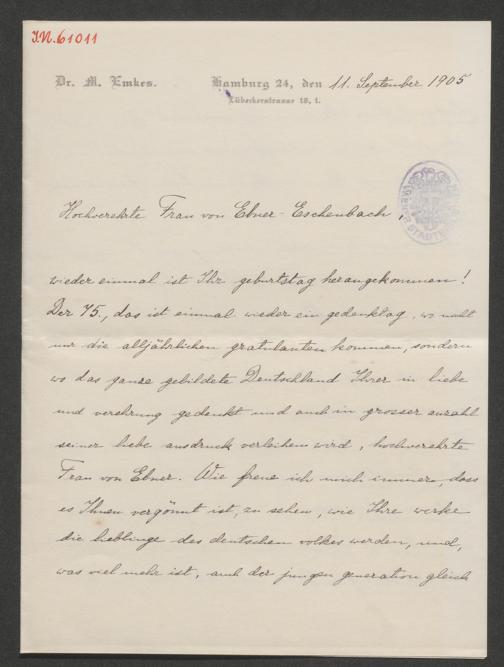 I.N. 61011
Dr. M. Emkes.
Hamburg 24, den 11. September 1905
Lübeckerstrasse 18, I.
Hochverehrte Frau von Ebner-Eschenbach,
wieder einmal ist Ihr geburtstag herangekommen!
Der 75., das ist einmal wieder ein gedenktag, wo nicht
nur die alljährlichen gratulanten kommen, sondern
wo das ganze gebildete Deutschland Ihrer in liebe
und verehrung gedenkt und auch in grosser anzahl
seiner liebe ausdruck verleihen wird, hochverehrte
Frau von Ebner. Wie freue ich mich immer, dass
es Ihnen vergönnt ist, zu sehen, wie Ihre werke
die lieblinge des deutschen volkes werden, und,
was viel mehr ist, auch der jungen generation gleich